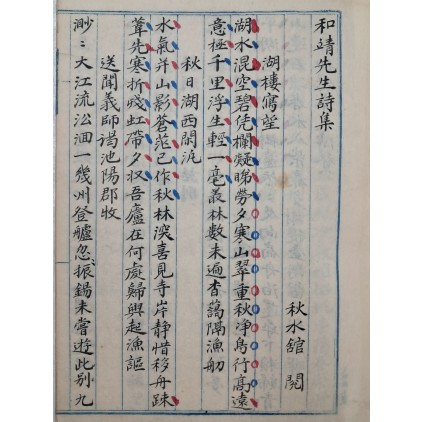 和靖先生詩集
秋水舘 閱
湖樓寫望
湖水混空碧凭欄凝睇勞夕寒山翠重秋净鳥行高遠
意極千里浮生輕一毫叢林數未遍杳藹隔漁舠
秋日湖西閒泛
水氣并山影蒼茫已作秋林深喜見寺岸静惜移舟踈
葦先寒折殘虹帶夕収吾廬在何處歸興起漁謳
送聞義師謁池陽郡牧
渺〻大江流㳂洄一幾州登艫忽振錫未嘗遊此别九